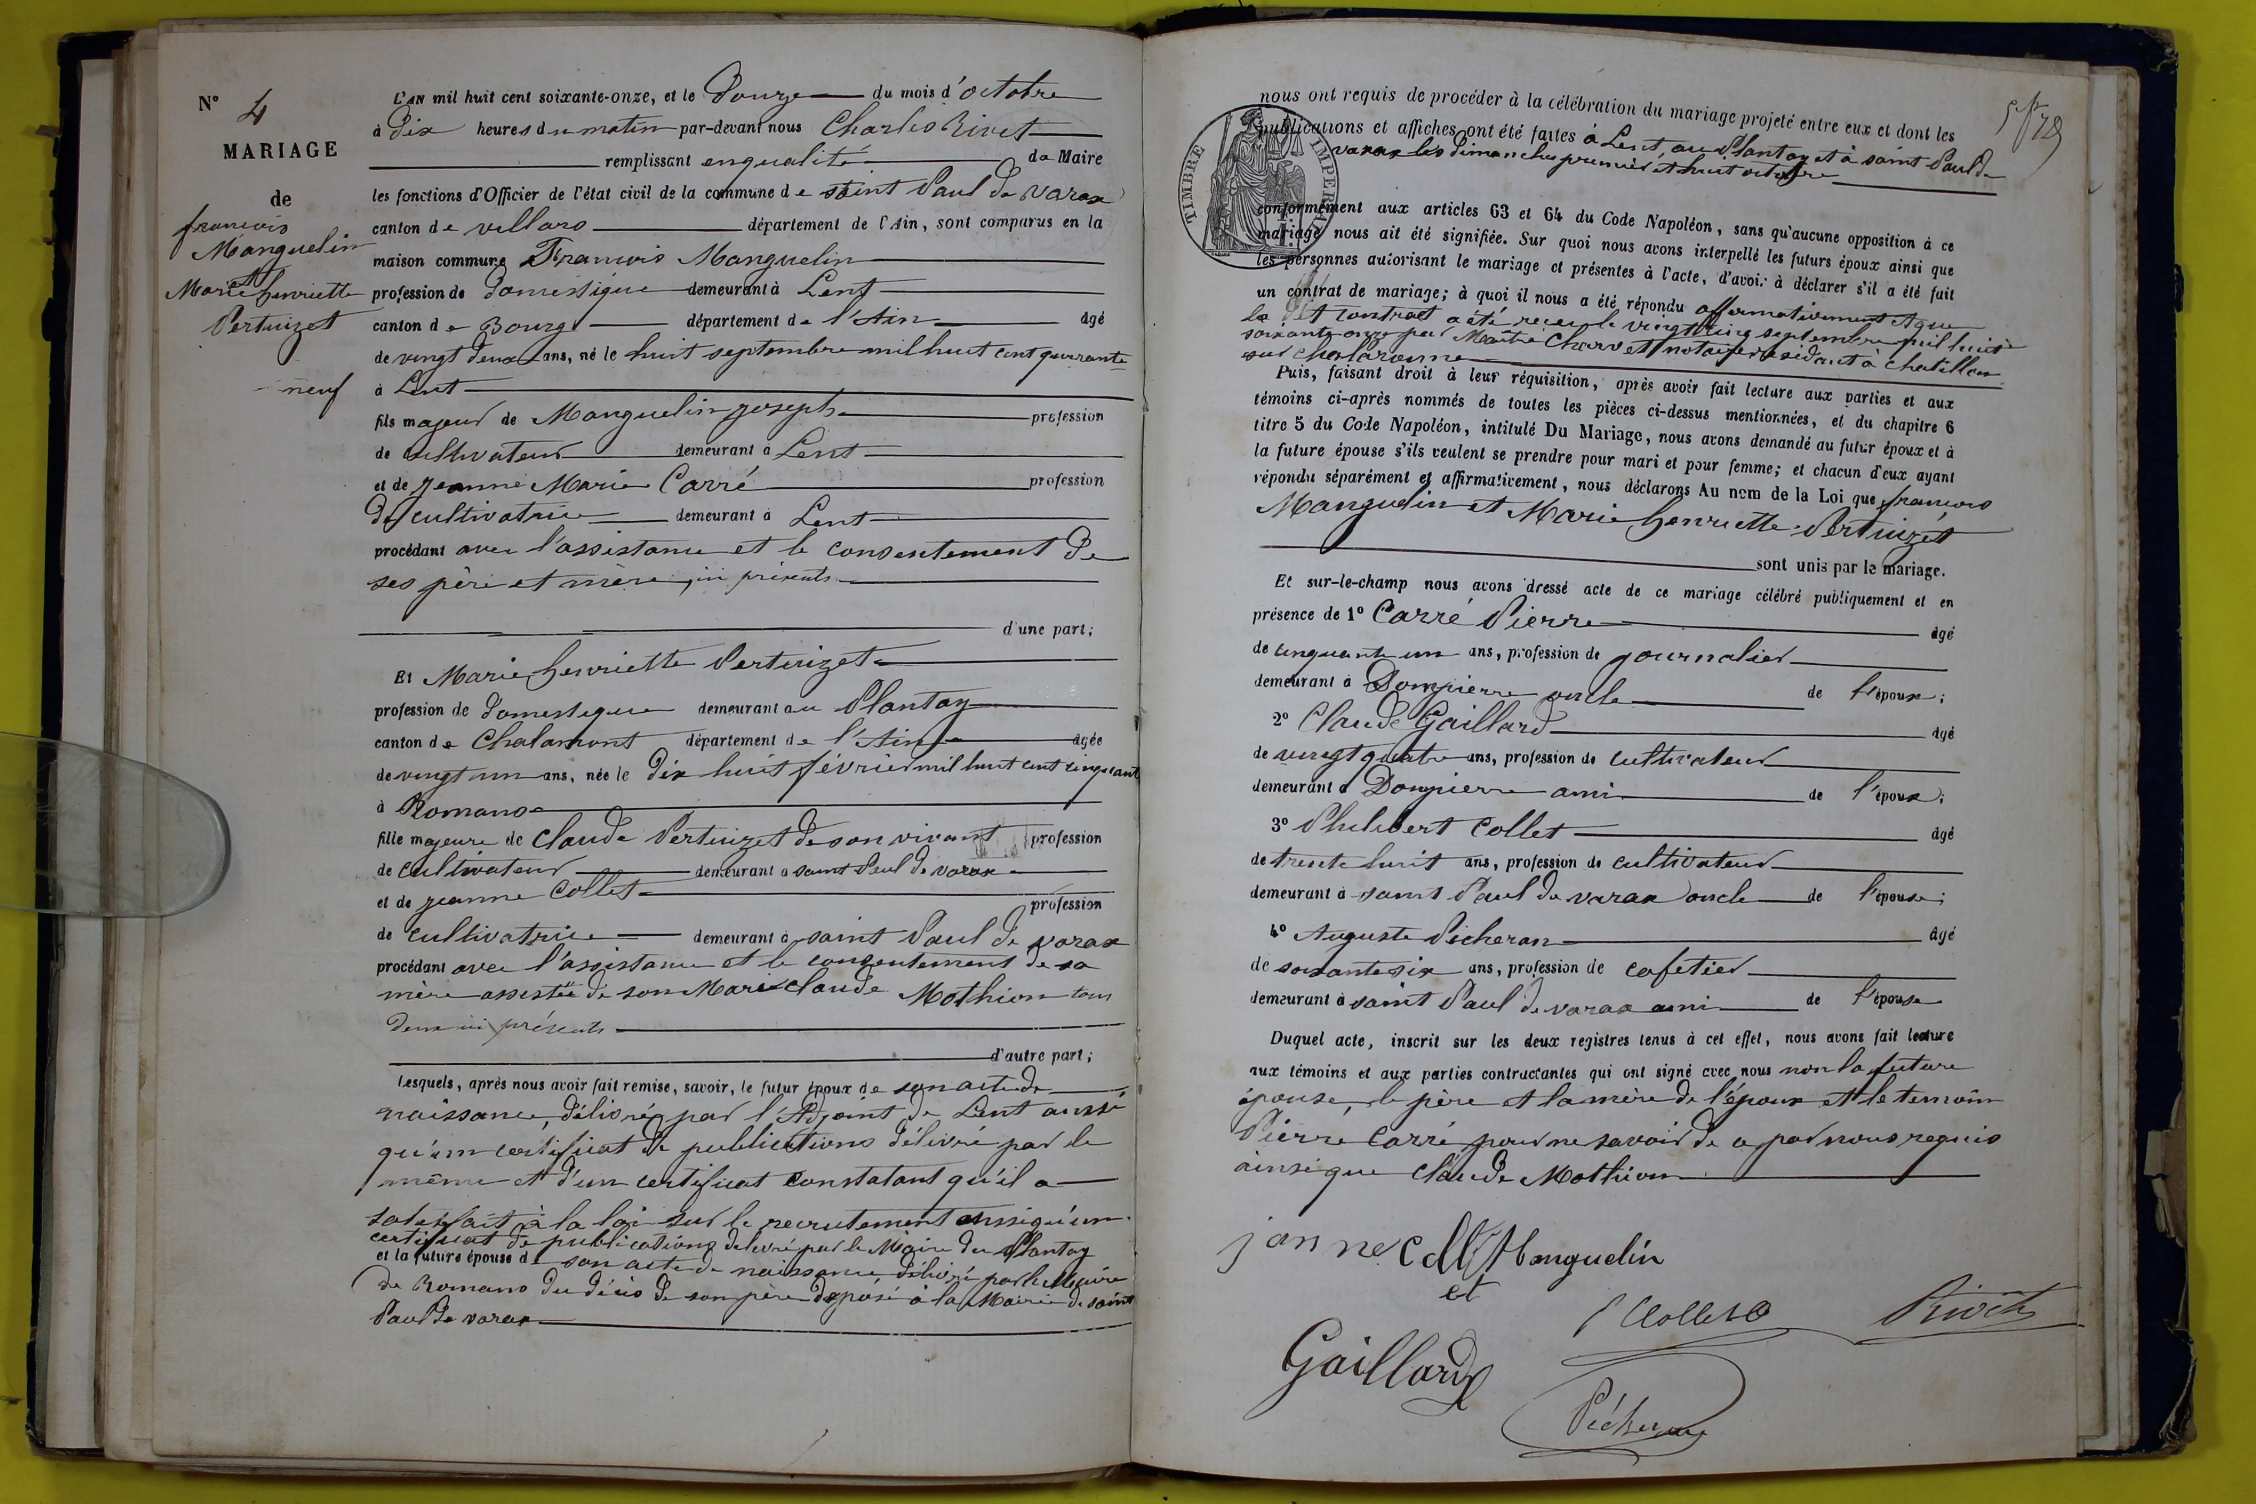 N° 4
MARIAGE
de
françois
Manguelin
et
Marie henriette
Pertuizet
L'AN mil huit cent soixante-onze, et le Douze du mois d'octobre
à Dix heures du matin par-devant nous Charles Rivet
remplissant en qualité de Maire
les fonctions d'Officier de l'état civil de la commune de saint Paul de varax
canton de villars département de l'Ain, sont comparus en la
maison commune François Manguelin
profession de Domestique demeurant à Lent
canton de Bourg département de l'Ain âgé
de vingt deux ans, né le huit septembre mil huit cent quarante
neuf à Lent
fils majeur de Manguelin joseph profession
de cultivateur demeurant à Lent
et de jeanne Marie Carré profession
de cultivatrice demeurant à Lent
procédant avec l'assistance et le consentement de
ses père et mère, ici présents
d'une part;
Et Marie henriette Pertuizet
profession de Domestique demeurant au Plantay
canton de Chalamont département de l'Ain âgée
de vingt un ans, née le dix huit février mil huit cent cinquante
à Romans
fille majeure de Claude Pertuizet de son vivant profession
de cultivateur demeurant à saint Paul de varax
et de jeanne Collet profession
de cultivatrice demeurant à saint Paul de varax
procédant avec l'assistance et le consentement de sa
mère assistée de son Mari Claude Mothion tous
deux ici présents
d'autre part;
Lesquels, après nous avoir fait remise, savoir, le futur époux de son acte de
naissance, délivré par l'Adjoint de Lent aussi
qu'un certificat de publications délivré par le
même et d'un certificat constatant qu'il a
satisfait à la loi sur le recrutement aussi qu'un
certificat de publications délivré par le Maire du Plantay
et la future épouse de son acte de naissance délivré par le Maire
de Romans du décès de son père déposé à la Mairie de saint
Paul de varax
nous ont requis de procéder à la célébration du mariage projeté entre eux et dont les
publications et affiches ont été faites à Lent au Plantay et à saint Paul de
varax les dimanches premier et huit octobre
TIMBRE IMPERIAL
conformément aux articles 63 et 64 du Code Napoléon, sans qu'aucune opposition à ce
mariage nous ait été signifiée. Sur quoi nous avons interpellé les futurs époux ainsi que
les personnes autorisant le mariage et présentes à l'acte, d'avoir à déclarer s'il a été fait
un contrat de mariage; à quoi il nous a été répondu affirmativement et que
le dit contrat a été reçu le vingt cinq septembre mil huit
soixante onze par Maître Charvet notaire résidant à Chatillon
sur Chalaronne
Puis, faisant droit à leur réquisition, après avoir fait lecture aux parties et aux
témoins ci-après nommés de toutes les pièces ci-dessus mentionnées, et du chapitre 6
titre 5 du Code Napoléon, intitulé Du Mariage, nous avons demandé au futur époux et à
la future épouse s'ils veulent se prendre pour mari et pour femme; et chacun d'eux ayant
répondu séparément et affirmativement, nous déclarons Au nom de la Loi que françois
Manguelin et Marie henriette Pertuizet
sont unis par le mariage.
Et sur-le-champ nous avons dressé acte de ce mariage célébré publiquement et en
présence de 1° Carré Pierre âgé
de cinquante un ans, profession de journalier
demeurant à Dompierre oncle de l'époux;
2° Claude Gaillard âgé
de vingt quatre ans, profession de cultivateur
demeurant à Dompierre ami de l'époux;
3° Philibert Collet âgé
de trente huit ans, profession de cultivateur
demeurant à saint Paul de varax oncle de l'épouse;
4° Auguste Picheran âgé
de soixante six ans, profession de cafetier
demeurant à saint Paul de varax ami de l'épouse
Duquel acte, inscrit sur les deux registres tenus à cet effet, nous avons fait lecture
aux témoins et aux parties contractantes qui ont signé avec nous non la future
épouse, le père et la mère de l'époux et le temoin
Pierre Carré pour ne savoir de ce par nous requis
ainsi que Claude Mothion
janne Coll Manguelin
et
Collet Rivet
Gaillard